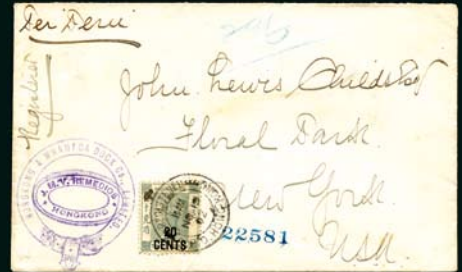 Registered
John Lewis Childs Esq
Floral Park
New York
USA
HONGKONG & WHAMPOA DOCK CO. LIMITED
J. M. V. REMEDIOS
HONGKONG
20
CENTS
22581